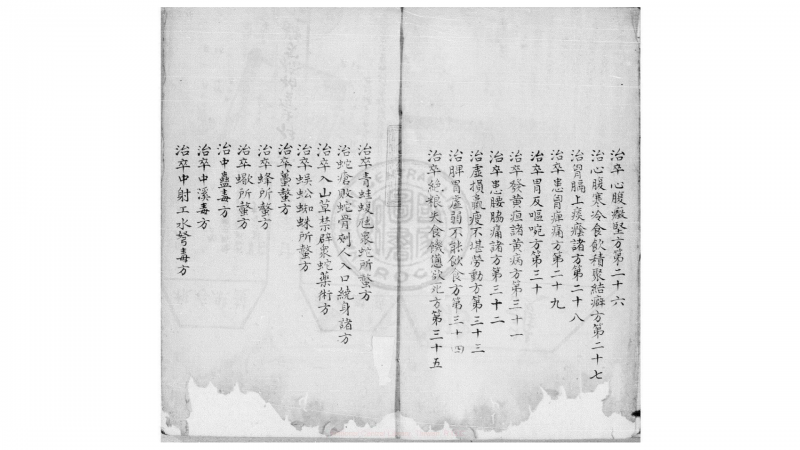 治卒心腹癥堅方第二十六
治心腹寒冷食飲積聚結癖方第二十七
治胷膈上痰癊諸方第二十八
治卒患胷痺痛方第二十九
治卒胃反嘔啘方第三十
治卒發黃疸諸黃病方第三十一
治卒患腰脇痛諸方第三十二
治虛損羸瘦不堪勞動方第三十三
治脾胃虛弱不能飲食方第三十四
治卒絶粮失食饑憊欲死方第三十五
治卒青蛙蝮虺衆蛇所螫方
治蛇瘡敗蛇骨刺人入口繞身諸方
治卒入山草禁辟衆蛇藥術方
治卒蜈蚣蜘蛛所螫方
治卒蠆螫方
治卒蜂所螫方
治卒蠍所螫方
治中蠱毒方
治卒中溪毒方
治卒中射工水弩毒方